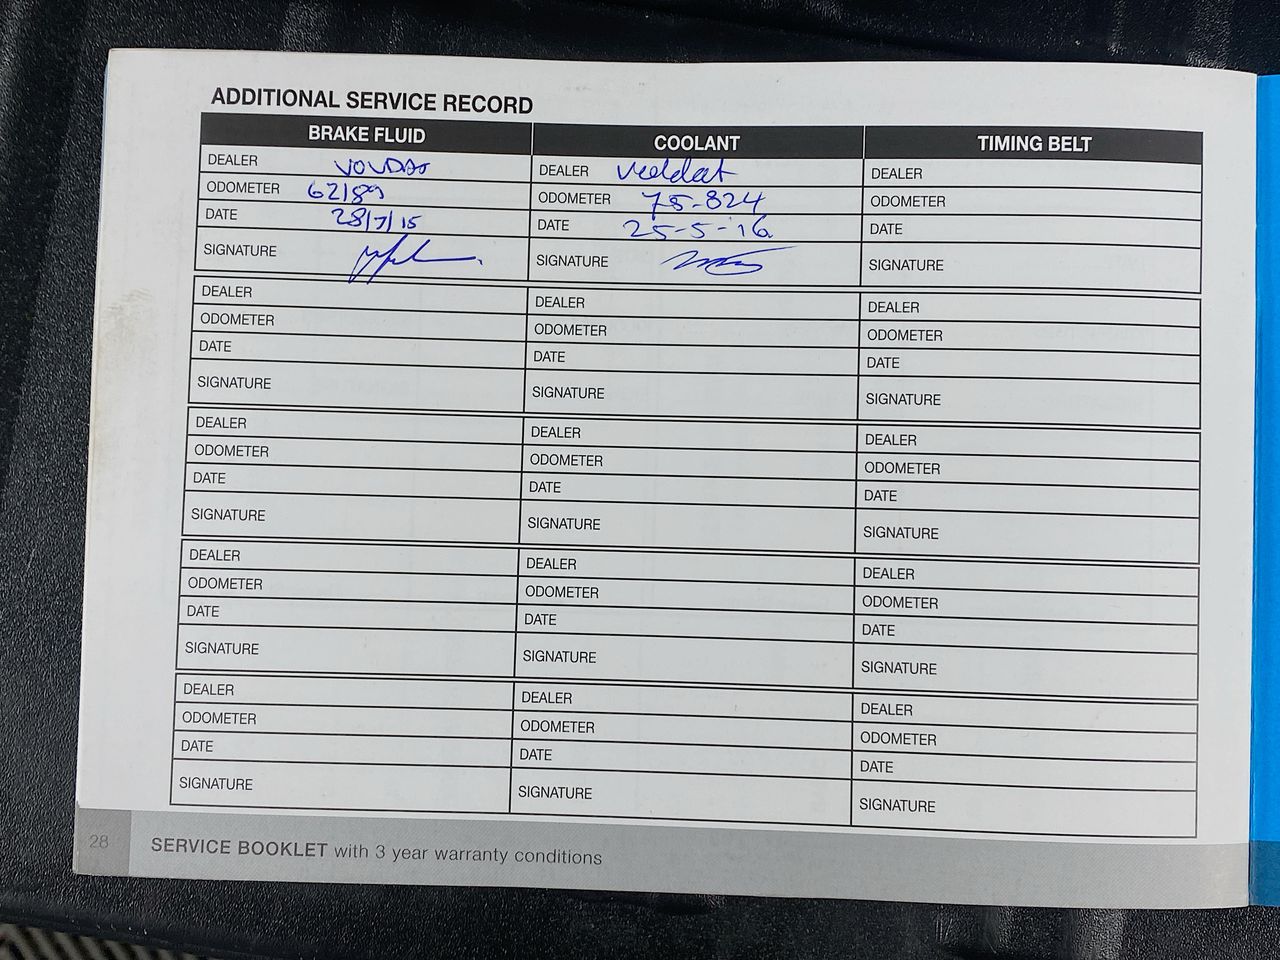 ADDITIONAL SERVICE RECORD
BRAKE FLUID COOLANT TIMING BELT
DEALER DEALER DEALER
ODOMETER 62189 ODOMETER 75-824 ODOMETER
DATE 28/7/15 DATE 25-5-'16 DATE
SIGNATURE SIGNATURE SIGNATURE
DEALER DEALER DEALER
ODOMETER ODOMETER ODOMETER
DATE DATE DATE
SIGNATURE SIGNATURE SIGNATURE
DEALER DEALER DEALER
ODOMETER ODOMETER ODOMETER
DATE DATE DATE
SIGNATURE SIGNATURE SIGNATURE
DEALER DEALER DEALER
ODOMETER ODOMETER ODOMETER
DATE DATE DATE
SIGNATURE SIGNATURE SIGNATURE
DEALER DEALER DEALER
ODOMETER ODOMETER ODOMETER
DATE DATE DATE
SIGNATURE SIGNATURE SIGNATURE
28 SERVICE BOOKLET with 3 year warranty conditions